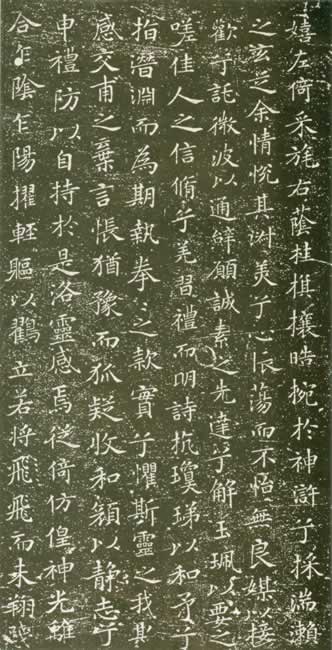 嬉左倚采旄右蔭桂棋攘皓捥於神滸兮採湍瀨
之玄芝余情悅其淑美兮心振蕩而不怡無良媒以接
歡兮託微波以通辭願誠素之先達兮解玉珮以要之
嗟佳人之信脩兮羌習禮而明詩抗瓊珶以和予兮
指潛淵而為期執拳〻之款實兮懼斯靈之我欺
感交甫之棄言悵猶豫而狐疑收和顏以靜志兮
申禮防以自持於是洛靈感焉徙倚仿偟神光離
合乍蔭乍陽擢輕軀以鸖立若將飛飛而未翔踐